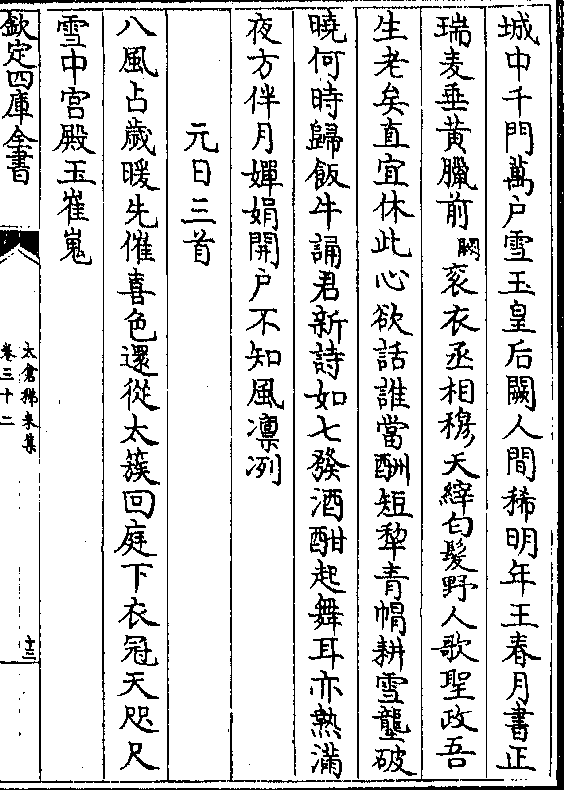 城中千門萬戸雪玉皇后闕人間稀明年王春月書正
瑞麦垂黄臘前闕衮衣丞相穆天縡白髪野人歌聖政吾
生老矣直宜休此心欲話誰當酬短犂青㡌耕雪壟破
曉何時歸飯牛誦君新詩如七發酒酣起舞耳亦熟滿
夜方伴月嬋娟開戸不知風凛冽
元日三首
八風占歲暖先催喜色還從太簇回庭下衣冠天咫尺
雪中宮殿玉崔嵬
欽定四庫全書
太倉稊米集
卷三十二
十三